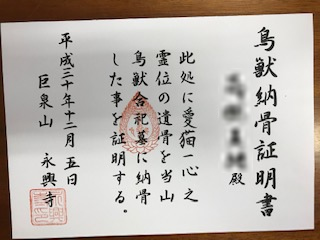 鳥獣納骨証明書
殿
此処に愛猫一心之
霊位の遺骨を当山
鳥獣合祀墓に納骨
した事を証明する。
平成三十年十二月五日
巨泉山 永興寺